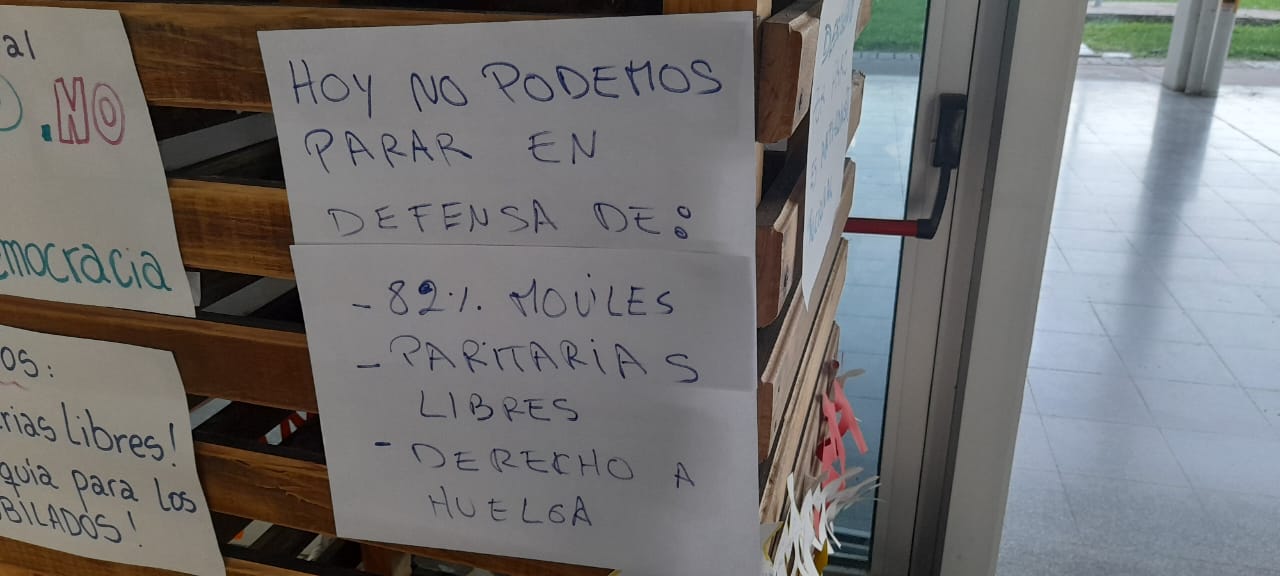 al
.NO
mocracia
OS:
rias Libres!
quia para los
BILADOS!
HOY NO PODEMOS
PARAR EN
DEFENSA DE:
- 82% MOVILES
- PARITARIAS
LIBRES
- DERECHO A
HUELGA